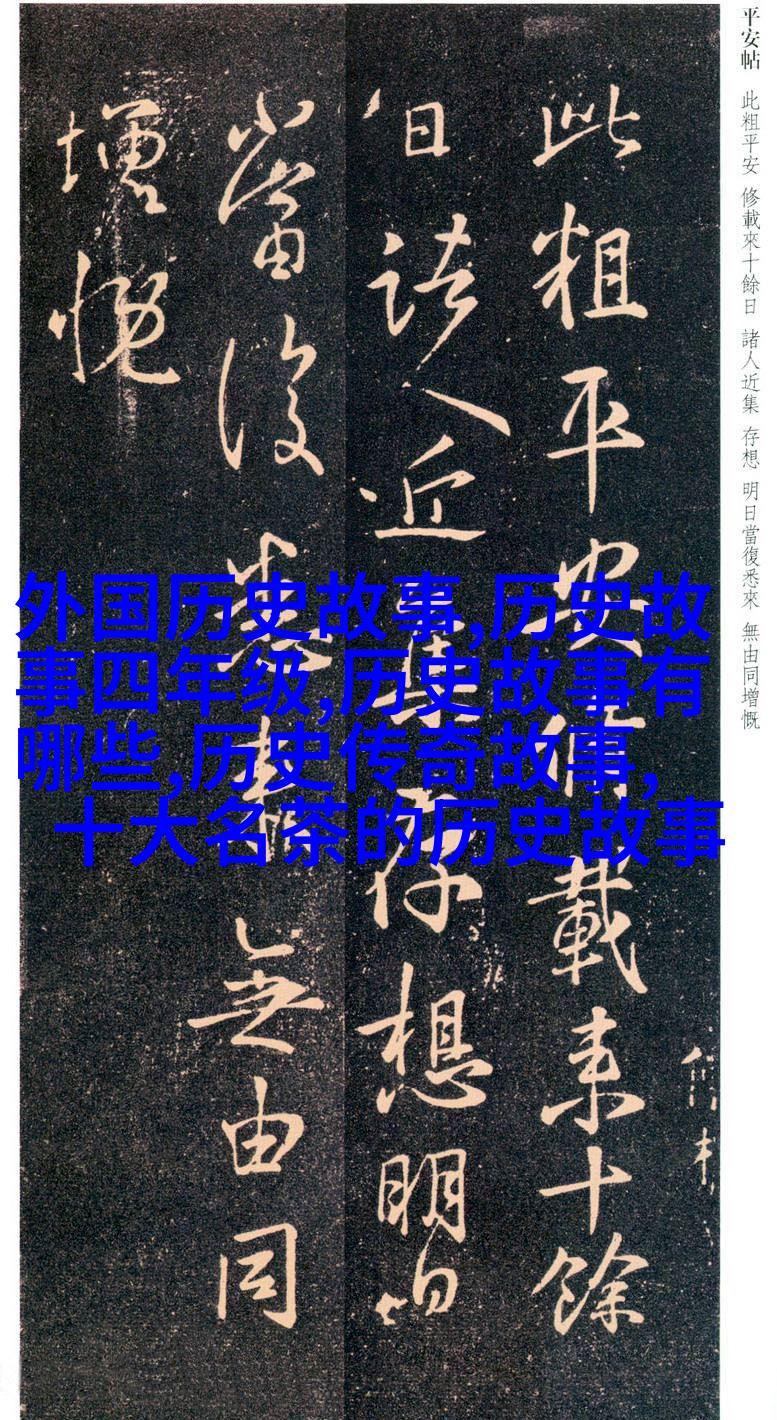 平安帖 此粗平安 修載來十餘日 諸人近集 存想 明日當復悉來 無由同增慨
此粗平安脩載来十餘
日諸人近集存想明日
當復悉来無由同
增慨
外国历史故事,历史故
事四年级,历史故事有
哪些,历史传奇故事,
十大名茶的历史故事